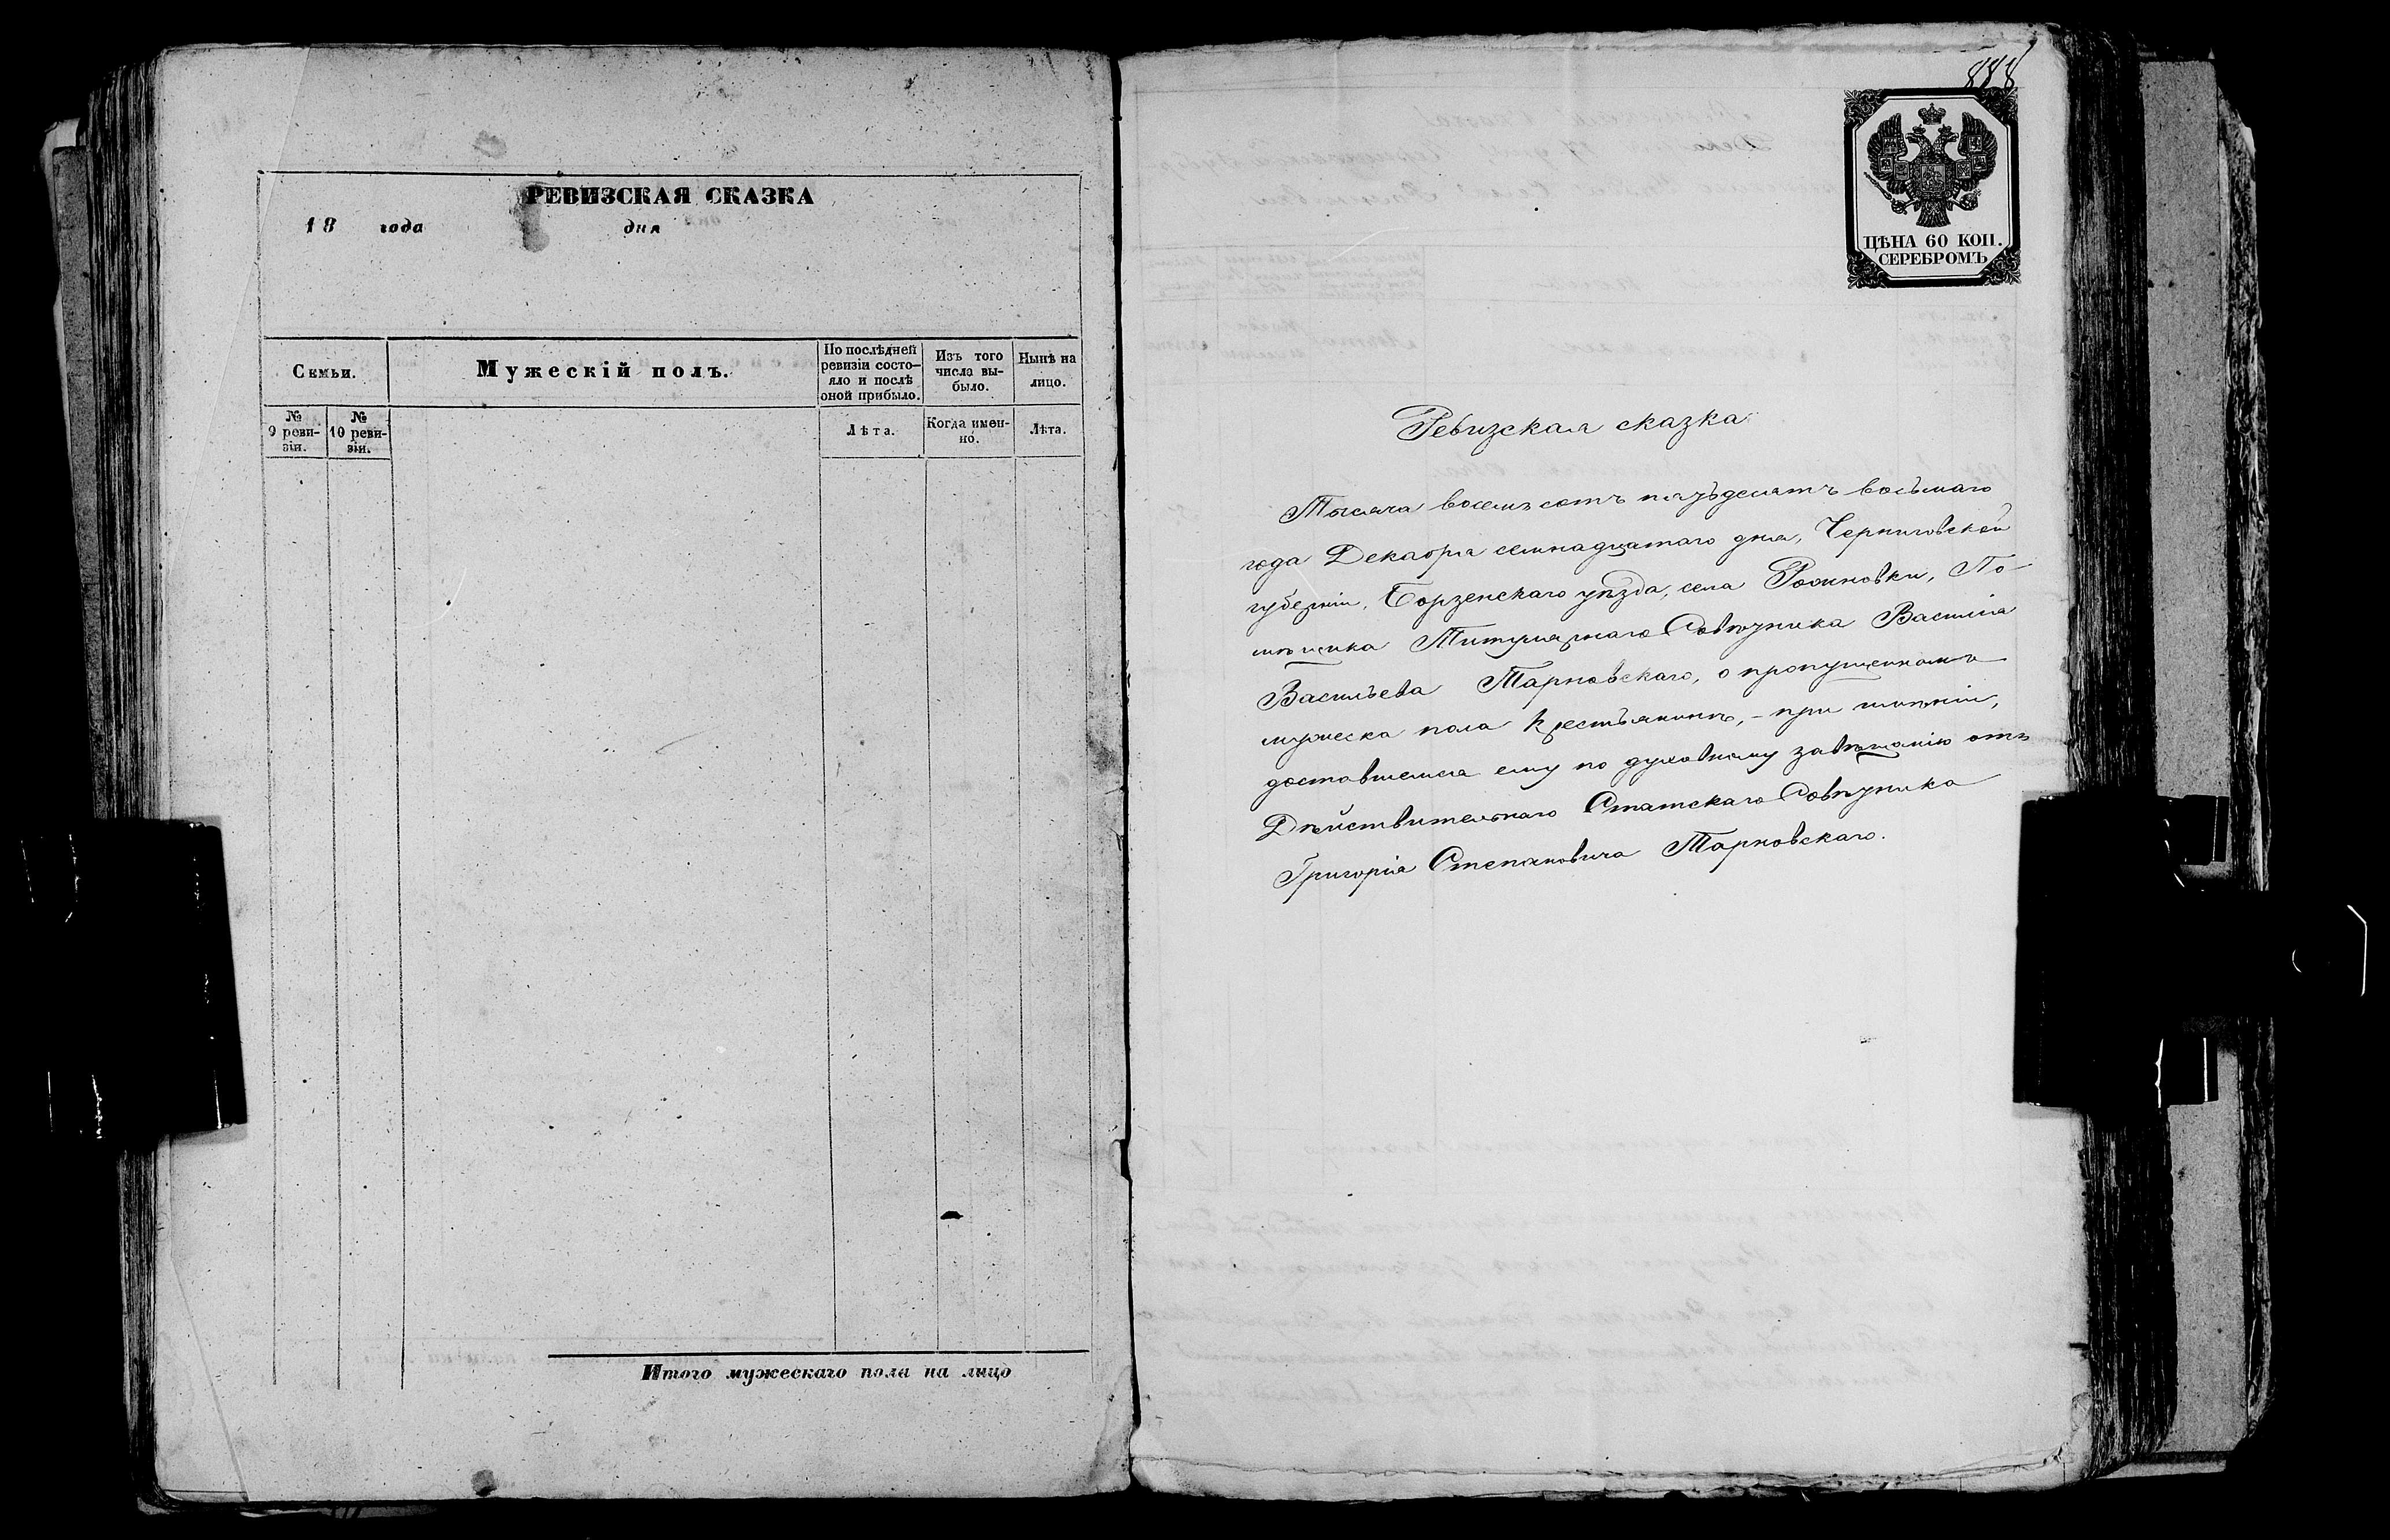 РЕВИЗСКАЯ СКАЗКА
18 года дня
Семьи.
Мужескій полъ.
По послѣдней
ревизіи состо-
яло и послѣ
оной прибыло.
Изъ того
числа вы-
было.
Нынѣ на
лицо.
№
9 реви-
зіи.
№
10 реви-
зіи.
Лѣта.
Когда имен-
но.
Лѣта.
Итого мужескаго пола на лицо
888
ЦѢНА 60 КОП.
СЕРЕБРОМЪ
Ревизская сказка
Тысяча восемь сотъ пятьдесятъ восьмаго
года Декабря семнадцатаго дня, Черниговской
губерніи, Борзенскаго уѣзда, села Рожновки, По-
мѣщика Титулярнаго Совѣтника Василія
Васильева Тарновскаго, о пропущенномъ
мужеска пола крестьянинѣ, - при имѣніи,
доставшемся ему по духовному завѣщанію отъ
Дѣйствительнаго Статскаго Совѣтника
Григорія Степановича Тарновскаго.